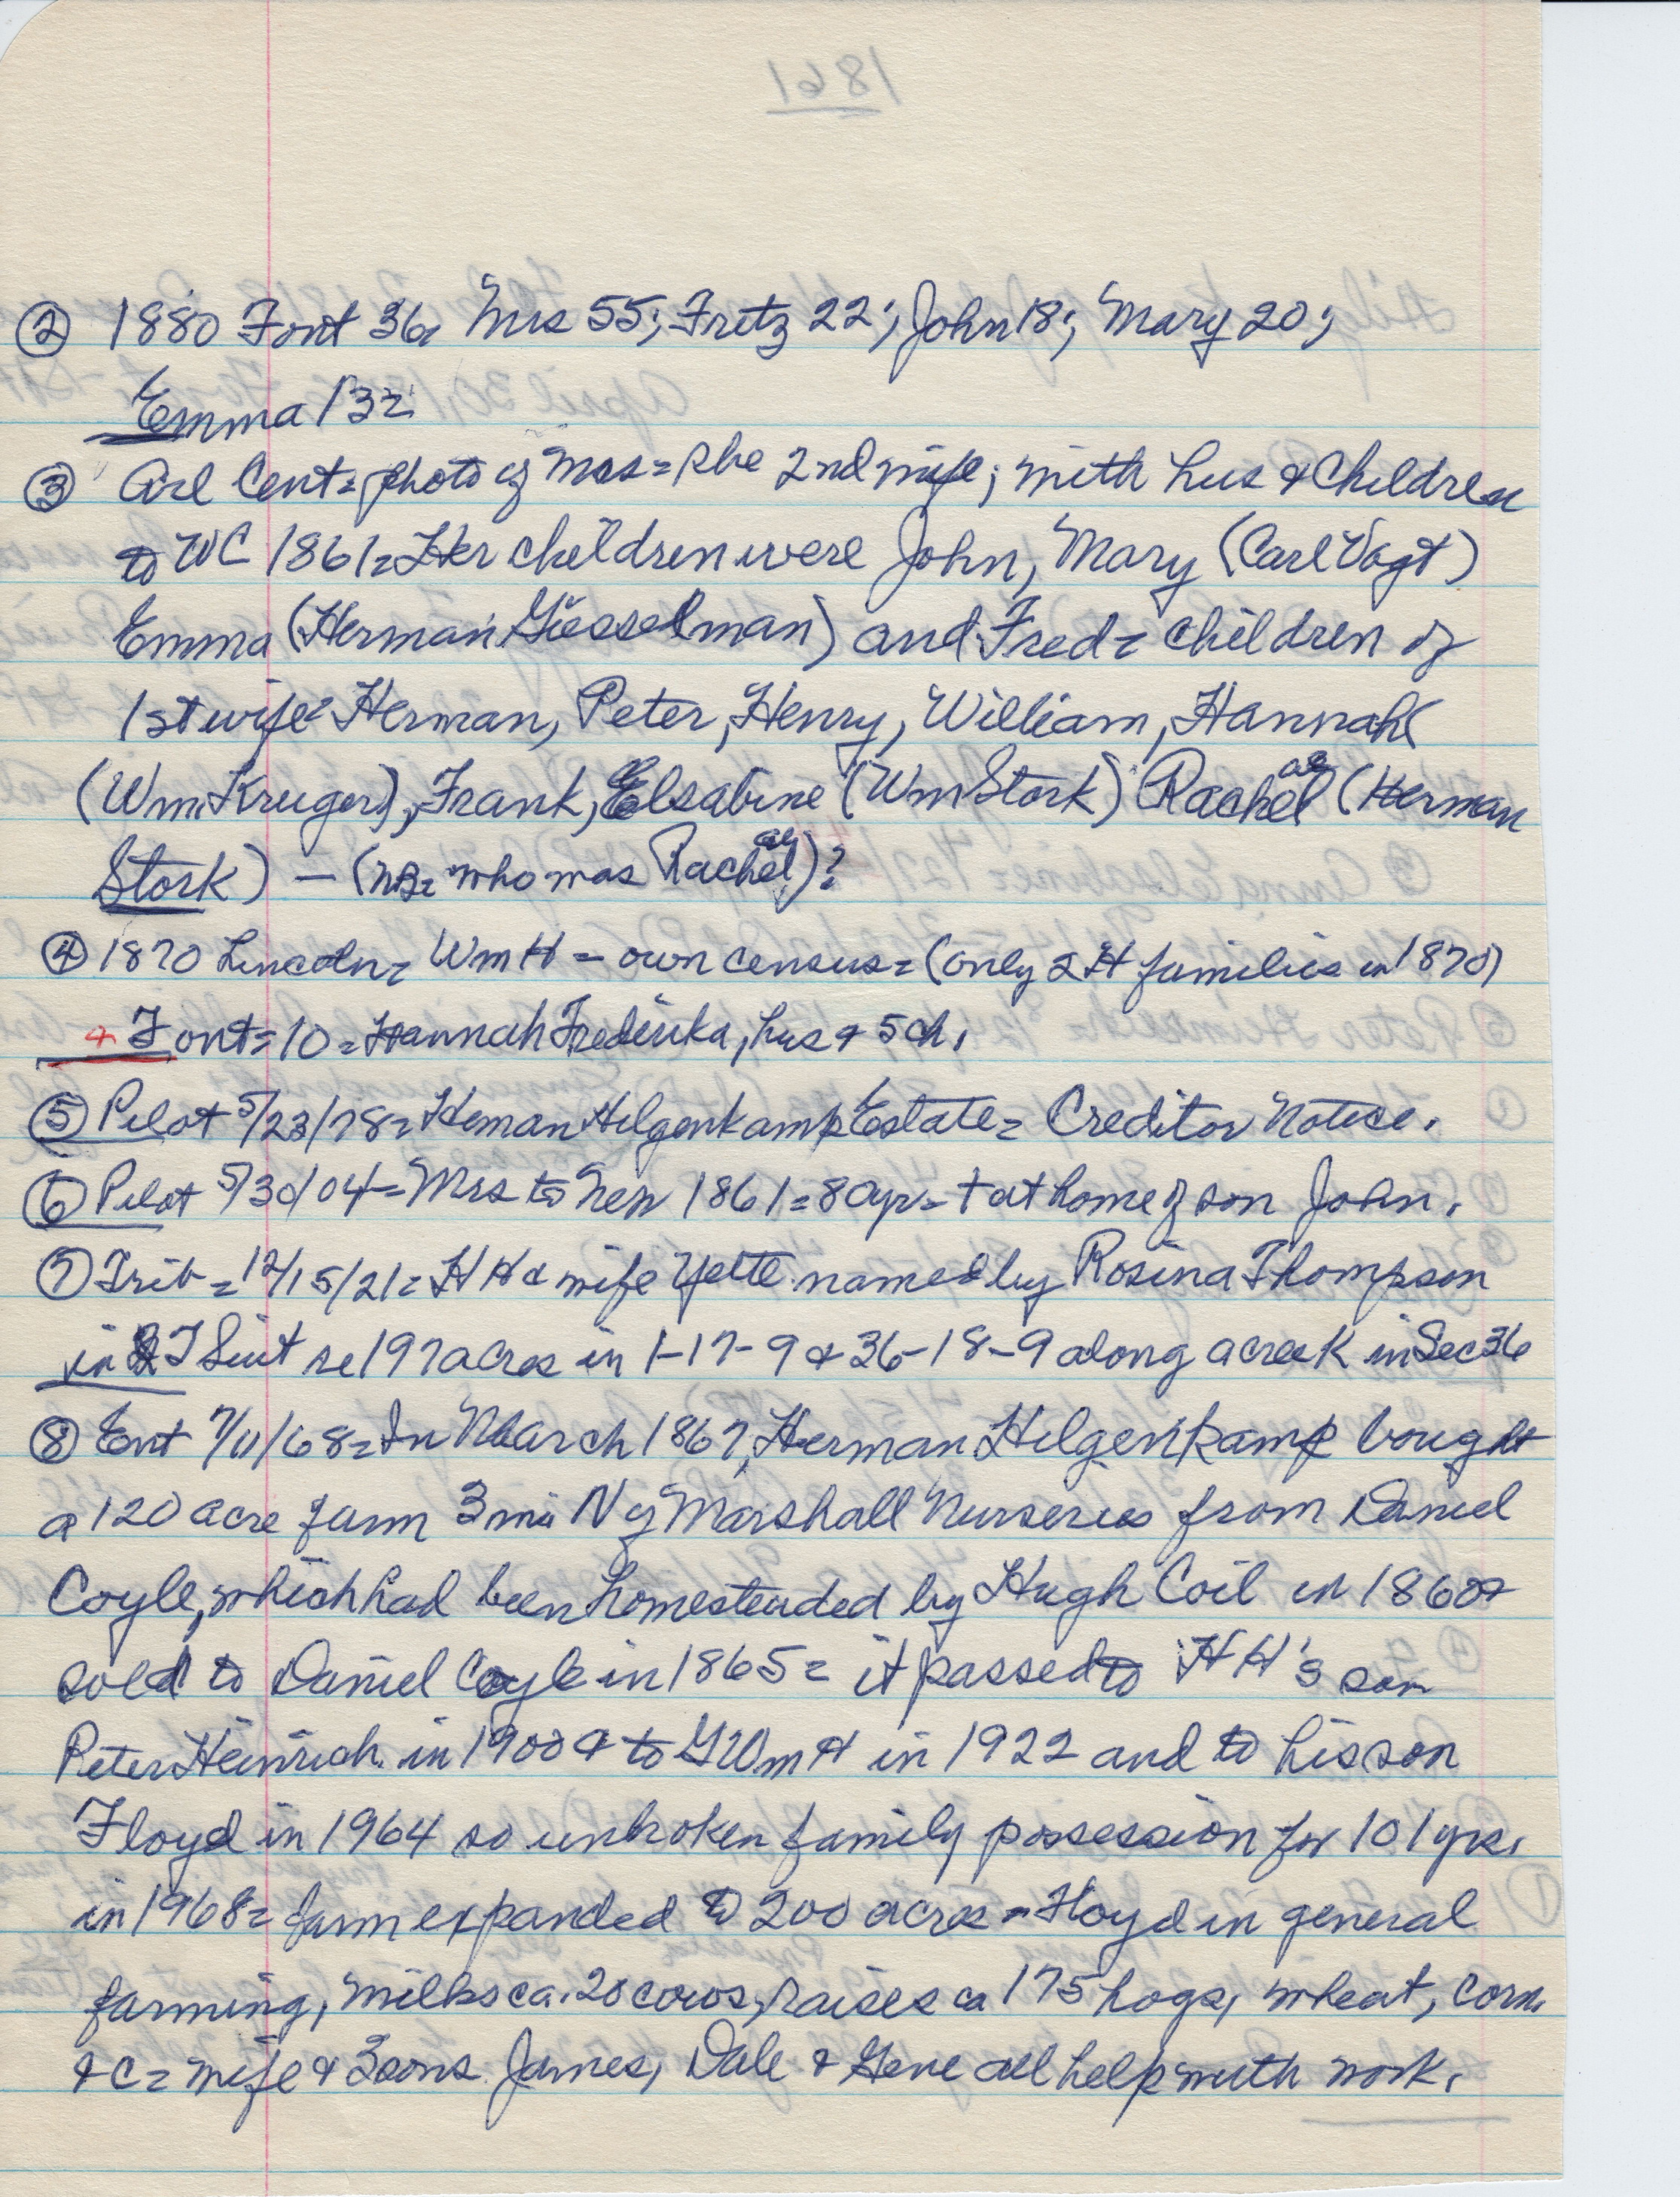 1861
② 1880 Font 36, Mrs 55; Fretz 22; John 18; Mary 20;
Emma 13=
③ Arl Cent= photo of Mrs= she 2nd wife; with hus & Children
to WC 1861= Her children were John, Mary (Carl Vogt)
Emma (Herman Giesselman) and Fred= children of
1st wife= Herman, Peter, Henry, William, Hannah
(Wm Kruger), Frank, Elsabine (Wm Stork) Rachel ae (Herman
Stork) — (NB= who was Rachel ae)?
④ 1870 Lincoln= Wm H = own census= (only 2 H families in 1870)
& Font= 10= Hannah Frederika, hus & 5 ch.
⑤ Pilot 5/23/78= Heman Hilgenkamp Estate= Creditor Notice.
⑥ Pilot 5/30/04= Mrs to Neb 1861= 80 yr= † at home of son John.
⑦ Trib= 12/15/21= HH & wife Yette named by Rosina Thompson
in QT Suit re 197 acres in 1-17-9 & 36-18-9 along a creek in Sec 36
⑧ Ent 7/11/68= In March 1867, Herman Hilgenkamp bought
a 120 acre farm 3 mi N of Marshall Nurseries from Daniel
Coyle, which had been homesteaded by Hugh Coil in 1860 &
sold to Daniel Coyle in 1865= it passed to HH's son
Peter Heinrich in 1900 & to GWmH in 1922 and to his son
Floyd in 1964 so unbroken family possession for 101 yrs.
in 1968= farm expanded to 200 acres = Floyd in general
farming, milks ca. 20 cows, raises ca 175 hogs, wheat, corn,
& c= wife & 3 sons James, Dale & Gene all help with work.